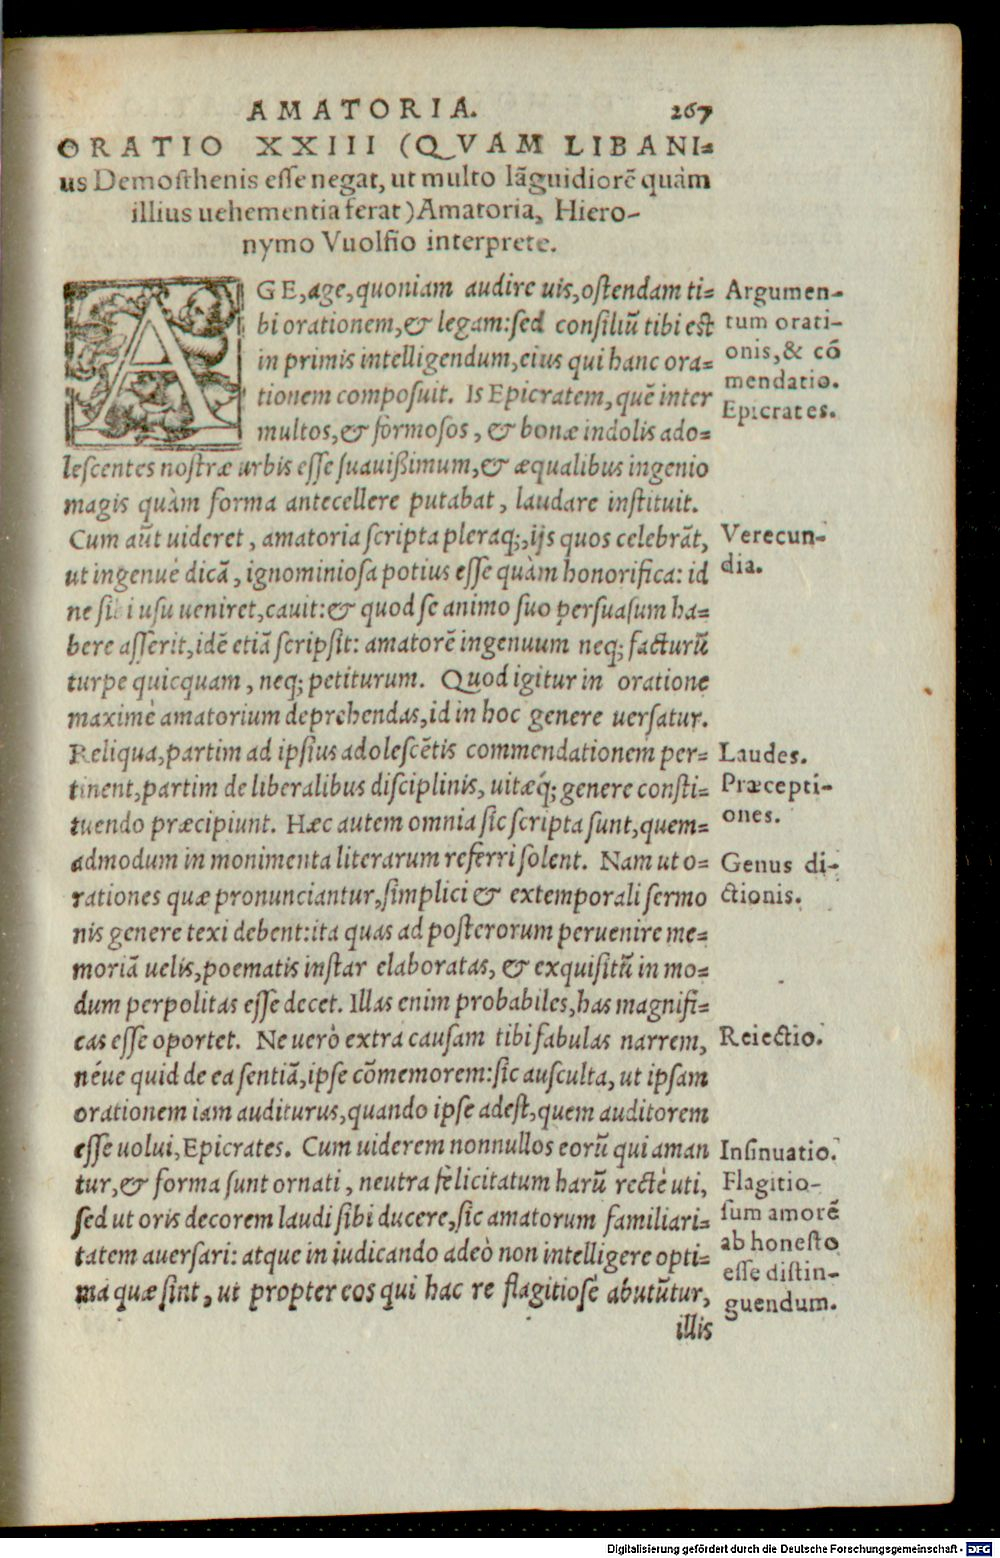 AMATORIA. 267
ORATIO XXIII (QVAM LIBANI-
us Demosthenis esse negat, ut multo lãguidiorẽ quàm
illius uehementia ferat) Amatoria, Hiero-
nymo Vuolfio interprete.
AGE, age, quoniam audire uis, ostendam ti-
bi orationem, & legam: sed consiliũ tibi est
in primis intelligendum, eius qui hanc ora-
tionem composuit. Is Epicratem, quẽ inter
multos, & formosos, & bonæ indolis ado-
lescentes nostræ urbis esse suauißimum, & æqualibus ingenio
magis quàm forma antecellere putabat, laudare instituit.
Cum aũt uideret, amatoria scripta pleraq;, ijs quos celebrãt,
ut ingenuè dicã, ignominiosa potius esse quàm honorifica: id
ne sibi usu ueniret, cauit: & quod se animo suo persuasum ha-
bere asserit, idẽ etiã scripsit: amatorẽ ingenuum neq; facturũ
turpe quicquam, neq; petiturum. Quod igitur in oratione
maximè amatorium deprehendas, id in hoc genere uersatur.
Reliqua, partim ad ipsius adolescẽtis commendationem per-
tinent, partim de liberalibus disciplinis, uitæq́; genere consti-
tuendo præcipiunt. Hæc autem omnia sic scripta sunt, quem-
admodum in monimenta literarum referri solent. Nam ut o-
rationes quæ pronunciantur, simplici & extemporali sermo
nis genere texi debent: ita quas ad posterorum peruenire me-
moriã uelis, poematis instar elaboratas, & exquisitũ in mo-
dum perpolitas esse decet. Illas enim probabiles, has magnifi-
cas esse oportet. Ne uerò extra causam tibi fabulas narrem,
néue quid de ea sentiã, ipse cõmemorem: sic ausculta, ut ipsam
orationem iam auditurus, quando ipse adest, quem auditorem
esse uolui, Epicrates. Cum uiderem nonnullos eorũ qui aman
tur, & forma sunt ornati, neutra felicitatum harũ rectè uti,
sed ut oris decorem laudi sibi ducere, sic amatorum familiari-
tatem auersari: atque in iudicando adeò non intelligere opti-
ma quæ sint, ut propter eos qui hac re flagitiosè abutũtur,
illis
Argumen-
tum orati-
onis, & cõ
mendatio.
Epicrates.
Verecun-
dia.
Laudes.
Præcepti-
ones.
Genus di-
ctionis.
Reiectio.
Insinuatio.
Flagitio-
sum amorẽ
ab honesto
esse distin-
guendum.
Digitalisierung gefördert durch die Deutsche Forschungsgemeinschaft - DFG